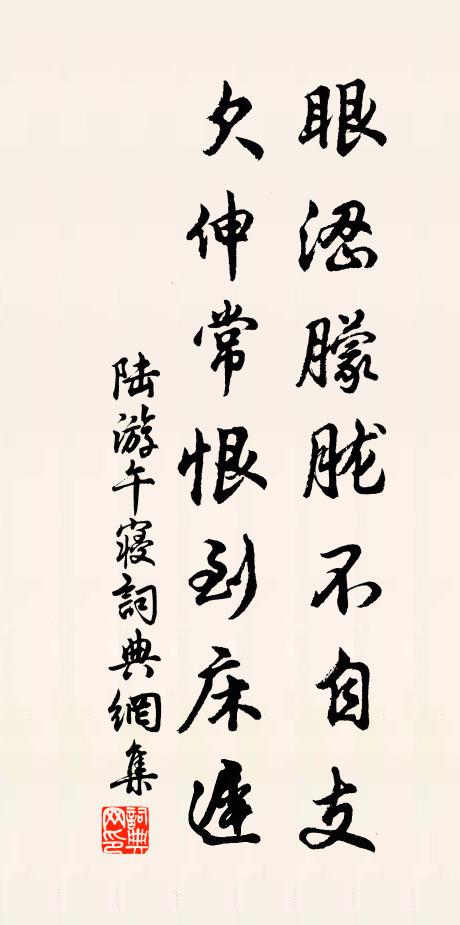 眼涩朦胧不自支
欠伸常恨到床遲
陆游午寢詞典網集
詞典网印